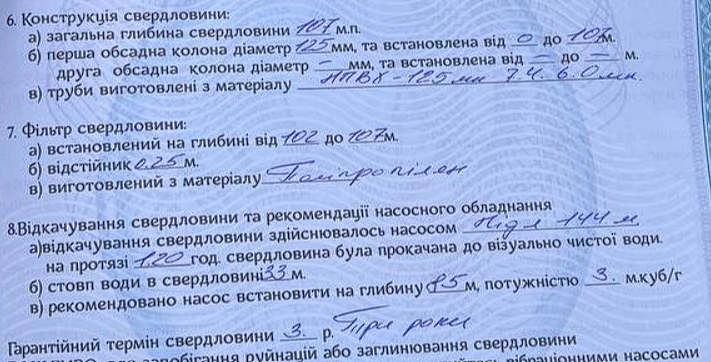 6. Конструкція свердловини:
а) загальна глибина свердловини 107 м.п.
б) перша обсадна колона діаметр 125 мм, та встановлена від 0 до 107 м.
друга обсадна колона діаметр – мм, та встановлена від – до – м.
в) труби виготовлені з матеріалу НПВХ - 125 мм 6.0 мм.
7. Фільтр свердловини:
а) встановлений на глибині від 102 до 107 м.
б) відстійник 0.25 м.
в) виготовлений з матеріалу Поліпропілен
8.Відкачування свердловини та рекомендації насосного обладнання
а)відкачування свердловини здійснювалось насосом 144 м
на протязі 1.20 год. свердловина була прокачана до візуально чистої води.
б) стовп води в свердловині 33 м.
в) рекомендовано насос встановити на глибину 85 м, потужністю 3. м.куб/г
Гарантійний термін свердловини 3. р. Три роки
запобігання руйнацій або заглинювання свердловини
вібраційними насосами